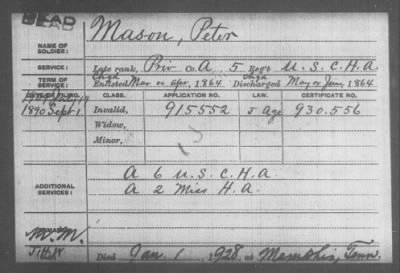 DEAD
Mason, Peter
NAME OF SOLDIER:
SERVICE: Late rank, Priv Co. A, 5 Reg't U.S.C.H.A.
TERM OF SERVICE: Enlisted Mar or Apr, 1864 Discharged May or June, 1864
DATE OF FILING. CLASS. APPLICATION NO. LAW. CERTIFICATE NO.
1890 Sept 1 Invalid, 915552 J Age 930.556
Widow,
Minor,
ADDITIONAL SERVICES:
A 6 U.S.C.H.A
A 2 Miss H.A.
M.M.
Died Jan. 1 1928, at Memphis, Tenn.